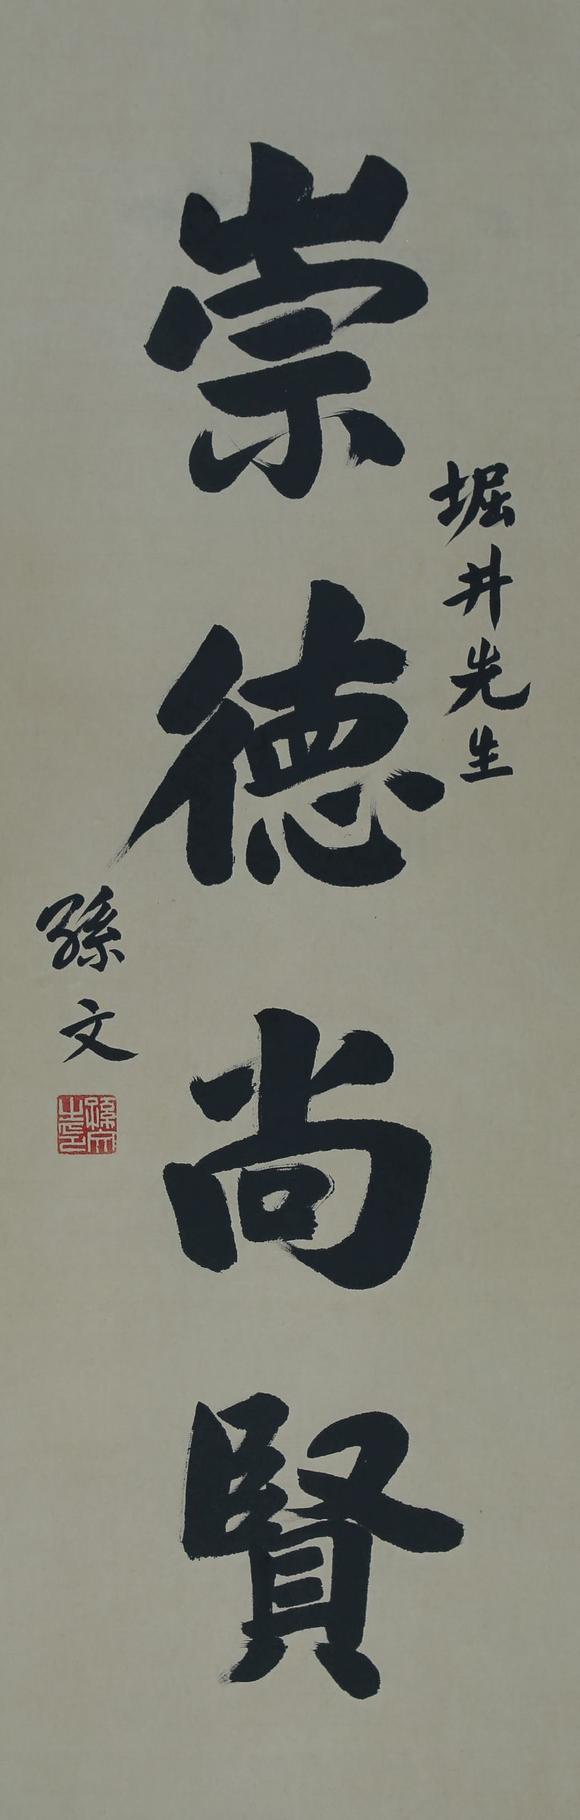 堀井先生
崇德尚賢
孫文
孫文之印